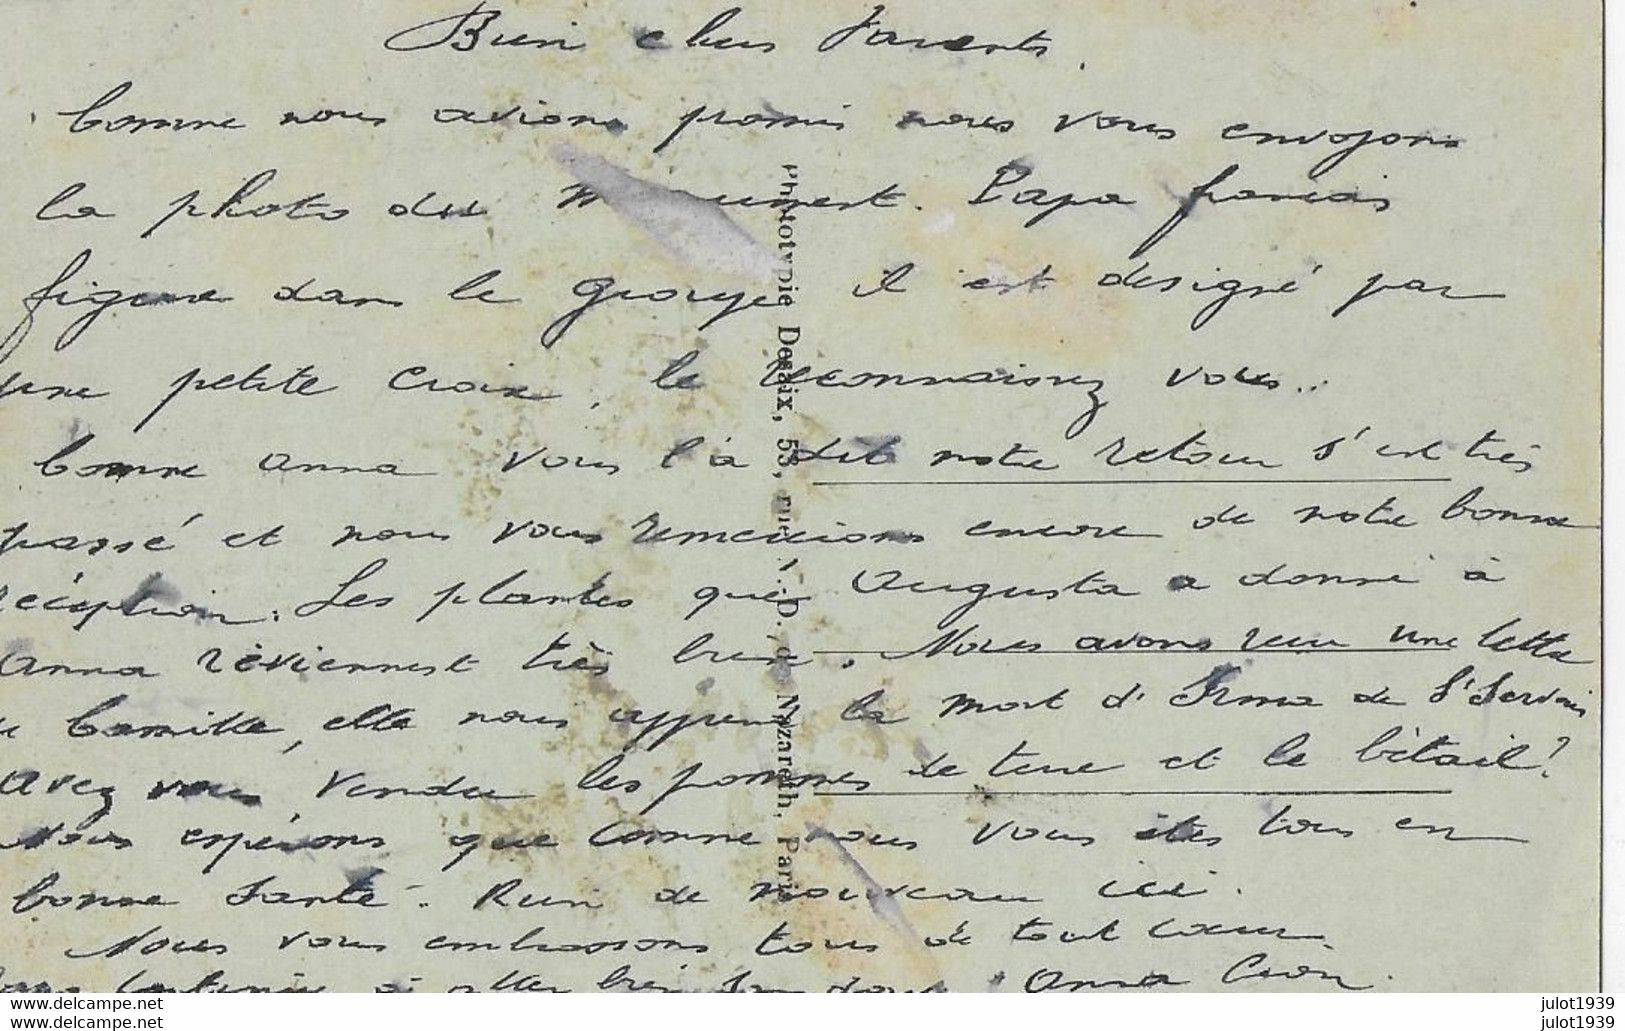 Bien chers Parents.
Comme nous avions promis nous vous envoyons
la photo du monument. Papa francais
figure dans le groupe il est designé par
une petite Croix, le reconnaissez vous..
Comme anna vous l'a dit notre retour s'est très
passé et nous vous remercions encore de notre bonne
réception. Les plantes que Augusta a donné à
anna réviennent très bien. Nous avons reçu une lettre
de Camille, elle nous apprend la mort d'Irma de St Servais
Avez vous vendu les pommes de terre et le bétail?
Nous espérons que comme nous vous êtes tous en
bonne Santé. Rien de nouveau ici.
Nous vous embrassons tous de tout coeur.
continue à aller bien Anna
Phototypie Desaix, 53, rue N.-D. de Nazareth, Paris
julot1939
julot1939
www.delcampe.net
www.delcampe.net